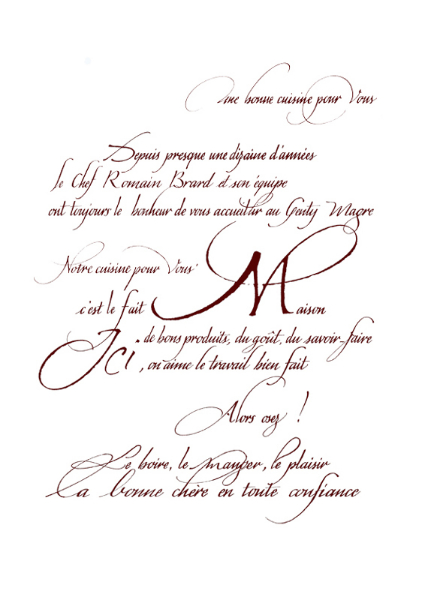 Une bonne cuisine pour Vous
Depuis presque une dizaine d'années
le Chef Romain Brard et son équipe
ont toujours le bonheur de vous accueillir au Genty Magre
Notre cuisine pour Vous
c'est le fait Maison
de bons produits, du goût, du savoir-faire
Ici, on aime le travail bien fait
Alors osez !
Le boire, le manger, le plaisir
La bonne chère en toute confiance